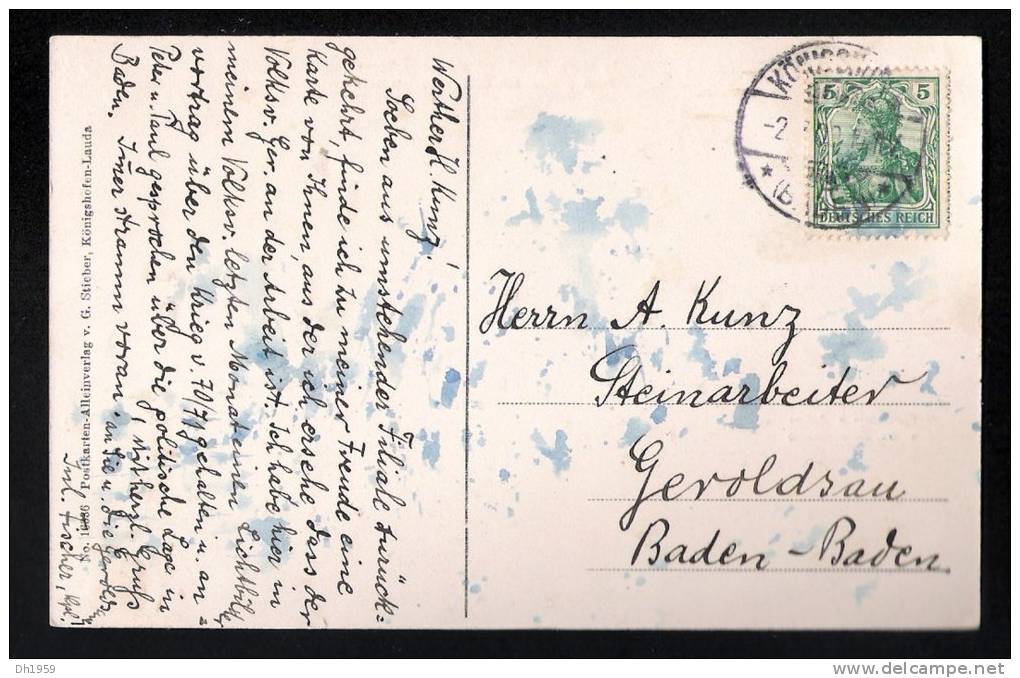 Werther H. Kunz!
Soeben aus umstehender Filiale zurück-
gekehrt, finde ich zu meiner Freude eine
Karte von Ihnen, aus der ich ersehe dass der
Volksv. Ger. an der Arbeit ist. Ich habe hier in
meinem Volksv. letzten Monat einen Lichtbilder
vortrag über den Krieg v. 70/71 gehalten u. an
Peter u. Paul gesprochen über die politische Lage in
Baden. Immer stramm voran! Herzl. Gruß
an Sie u. die
Jul. Fischer, Kpl.
No. Postkarten-Alleinverlag v. G. Stieber, Königshofen-Lauda
5 5
DEUTSCHES REICH
Herrn A. Kunz
Steinarbeiter
Geroldsau
Baden-Baden
DH1959
http://www.delcampe.net